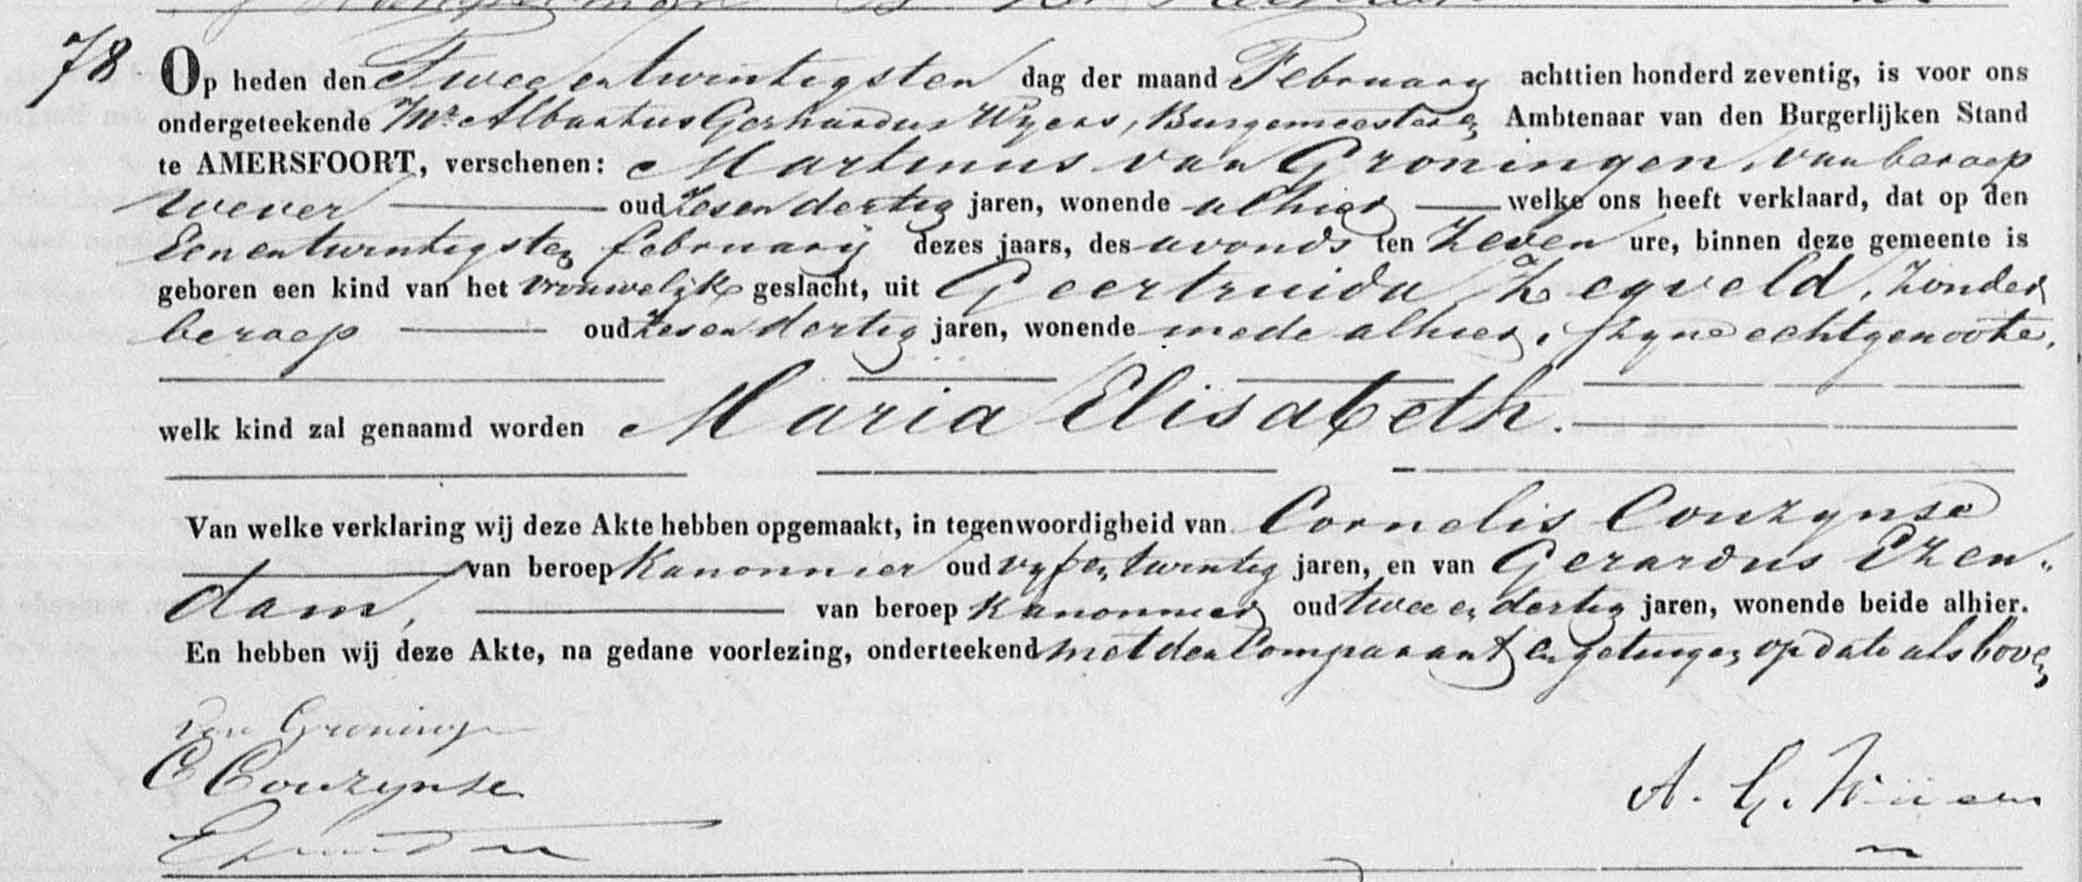 78 Op heden den Twee en twintigsten dag der maand February achttien honderd zeventig, is voor ons
ondergeteekende Mr. Albartus Gerhardus Wijers, Burgemeester, Ambtenaar van den Burgerlijken Stand
te AMERSFOORT, verschenen: Martinus van Groningen, van beroep
wever oud zesendertig jaren, wonende alhier welke ons heeft verklaard, dat op den
Eenentwintigsten february dezes jaars, des avonds ten Zeven ure, binnen deze gemeente is
geboren een kind van het vrouwelijk geslacht, uit Geertruida Zegveld, zonder
beroep oud zesendertig jaren, wonende mede alhier, zyne echtgenoote,
welk kind zal genaamd worden Maria Elisabeth.
Van welke verklaring wij deze Akte hebben opgemaakt, in tegenwoordigheid van Cornelis Couzynse
van beroep Kanonnier oud vyfentwintig jaren, en van Gerardus Ezen„
dam, van beroep Kanonnier oud twee en dertig jaren, wonende beide alhier.
En hebben wij deze Akte, na gedane voorlezing, onderteekend met den Comparant en getuigen op dato als boven
van Groningen
C Couzynse
A. G. Wijers